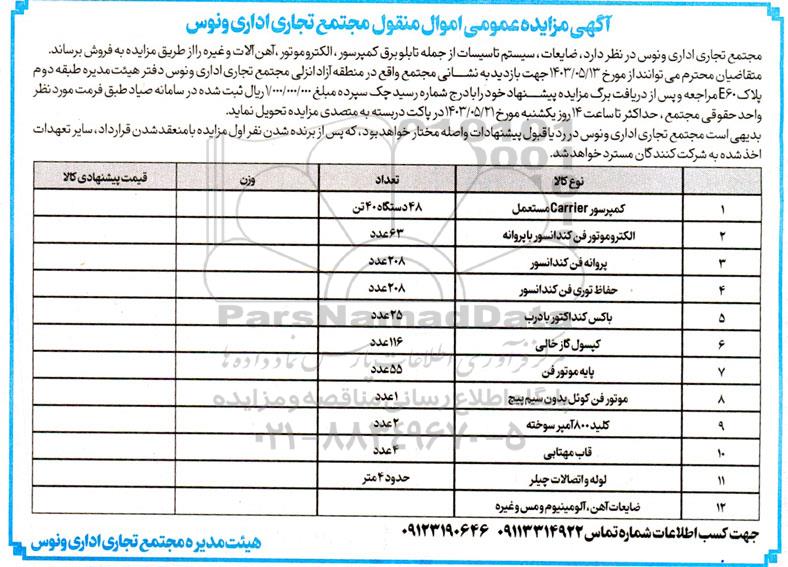 آگهی مزایده عمومی اموال منقول مجتمع تجاری اداری ونوس
مجتمع تجاری اداری ونوس در نظر دارد، ضایعات، سیستم تاسیسات از جمله تابلو برق کمپرسور، الکتروموتور، آهن‌آلات و غیره را از طریق مزایده به فروش برساند.
متقاضیان محترم می‌توانند از مورخ ۱۴۰۳/۰۵/۱۳ جهت بازدید به نشانی مجتمع واقع در منطقه آزاد انزلی مجتمع تجاری اداری ونوس دفتر هیئت مدیره طبقه دوم
پلاک E۶۰ مراجعه و پس از دریافت برگ مزایده پیشنهاد خود را با درج شماره رسید چک سپرده مبلغ ۷/۰۰۰/۰۰۰/۰۰۰ ریال ثبت شده در سامانه صیاد طبق فرمت مورد نظر
واحد حقوقی مجتمع، حداکثر تا ساعت ۱۴ روز یکشنبه مورخ ۱۴۰۳/۰۵/۲۱ در پاکت دربسته به متصدی مزایده تحویل نماید.
بدیهی است مجتمع تجاری اداری ونوس در رد یا قبول پیشنهادات واصله مختار خواهد بود، که پس از برنده شدن نفر اول مزایده با منعقد شدن قرارداد، سایر تعهدات
اخذ شده به شرکت کنندگان مسترد خواهد شد.
نوع کالا تعداد وزن قیمت پیشنهادی کالا
۱ کمپرسور Carrier مستعمل ۴۸ دستگاه ۴۰ تن
۲ الکتروموتور فن کندانسور با پروانه ۶۳ عدد
۳ پروانه فن کندانسور ۲۰۸ عدد
۴ حفاظ توری فن کندانسور ۲۰۸ عدد
۵ باکس کنداکتور با درب ۲۵ عدد
۶ کپسول گاز خالی ۱۱۶ عدد
۷ پایه موتور فن ۵۵ عدد
۸ موتور فن کوئل بدون سیم پیچ ۱ عدد
۹ کلید ۸۰۰ آمپر سوخته ۲ عدد
۱۰ قاب مهتابی ۴ عدد
۱۱ لوله و اتصالات چیلر حدود ۴ متر
۱۲ ضایعات آهن، آلومینیوم و مس و غیره
جهت کسب اطلاعات شماره تماس ۰۹۱۱۳۳۱۴۹۲۲ ۰۹۱۲۳۱۹۰۶۴۶
هیئت مدیره مجتمع تجاری اداری ونوس
ParsNamadData
مرکز فرآوری اطلاعات پارس نماد داده ها
پایگاه اطلاع رسانی مناقصه و مزایده
۰۲۱-۸۸۳۴۹۶۷۰-۵